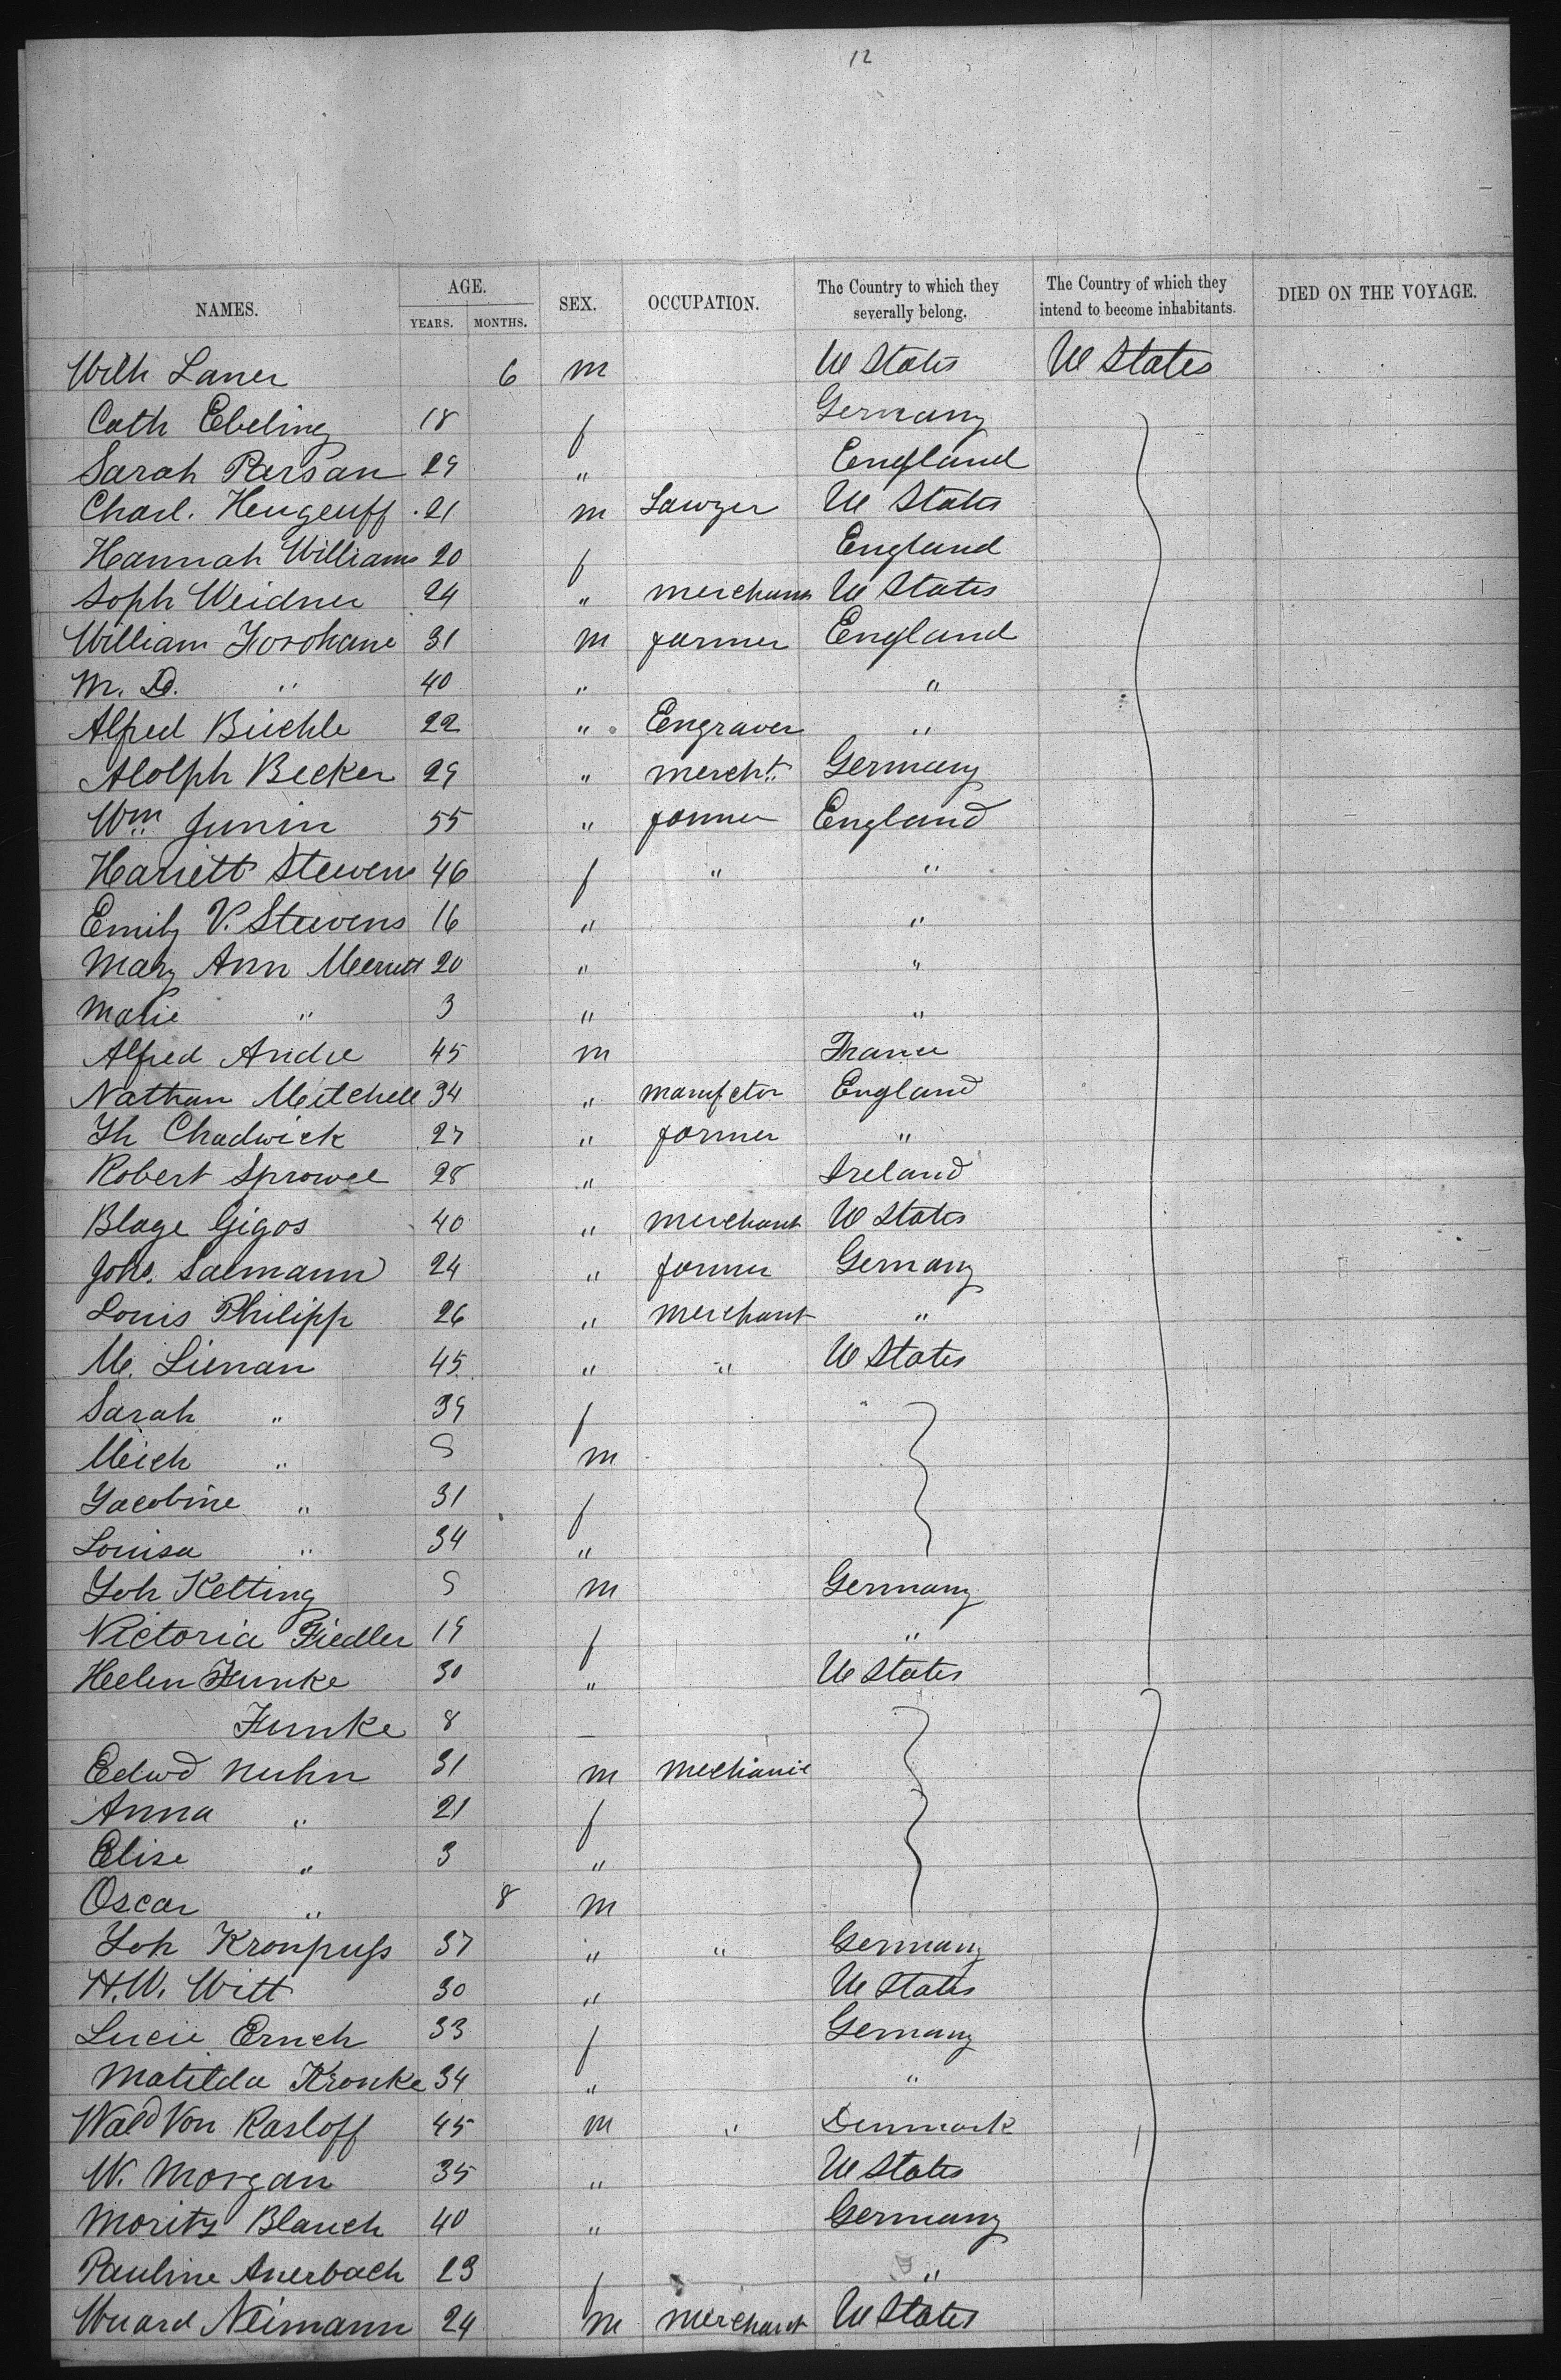 12
NAMES. AGE. YEARS. MONTHS. SEX. OCCUPATION. The Country to which they severally belong. The Country of which they intend to become inhabitants. DIED ON THE VOYAGE.
Wilh Laner 6 m U States U States
Cath Ebeling 18 f Germany
Sarah Parsan 29 " England
Charl. Hengeuff 21 m Lawyer U States
Hannah Williams 20 f England
Soph Weidner 24 " merchant U States
William 31 m farmer England
M. D. " 40 " "
Alfred Buchle 22 " Engraver "
Adolph Becker 29 " mercht. Germany
Wm Junin 55 " farmer England
Hariett Stewens 46 f " "
Emily V. Stewens 16 " "
Mary Ann Merritt 20 " "
Marie " 3 " "
Alfred Andre 45 m France
Nathan Mitchell 34 " manfctor England
Th Chadwick 27 " farmer "
Robert Sprowel 28 " Ireland
Blage Gigos 40 " merchant U States
Johs. Salmann 24 " farmer Germany
Louis Philipp 26 " merchant "
M. Lienan 45 " " U States
Sarah " 39 f
Mich " 9 m
Jacobine " 31 f
Louisa " 34 "
Joh Kelting 9 m Germany
Victoria Fiedler 19 f "
Helen Funke 30 " U States
Funke 8 —
Edwd Nuhn 31 m mechanic
Anna " 21 f
Elise " 3 "
Oscar " 8 m
Joh Kronfuss 37 " " Germany
H. W. Witt 30 " U States
Lucie Ernch 33 f Germany
Matilda Kronke 34 " "
Wald Von Rasloff 45 m " Denmark
W. Morgan 35 " U States
Moritz Blanch 40 " Germany
Pauline Auerbach 23 f "
Neimann 24 m merchant U States